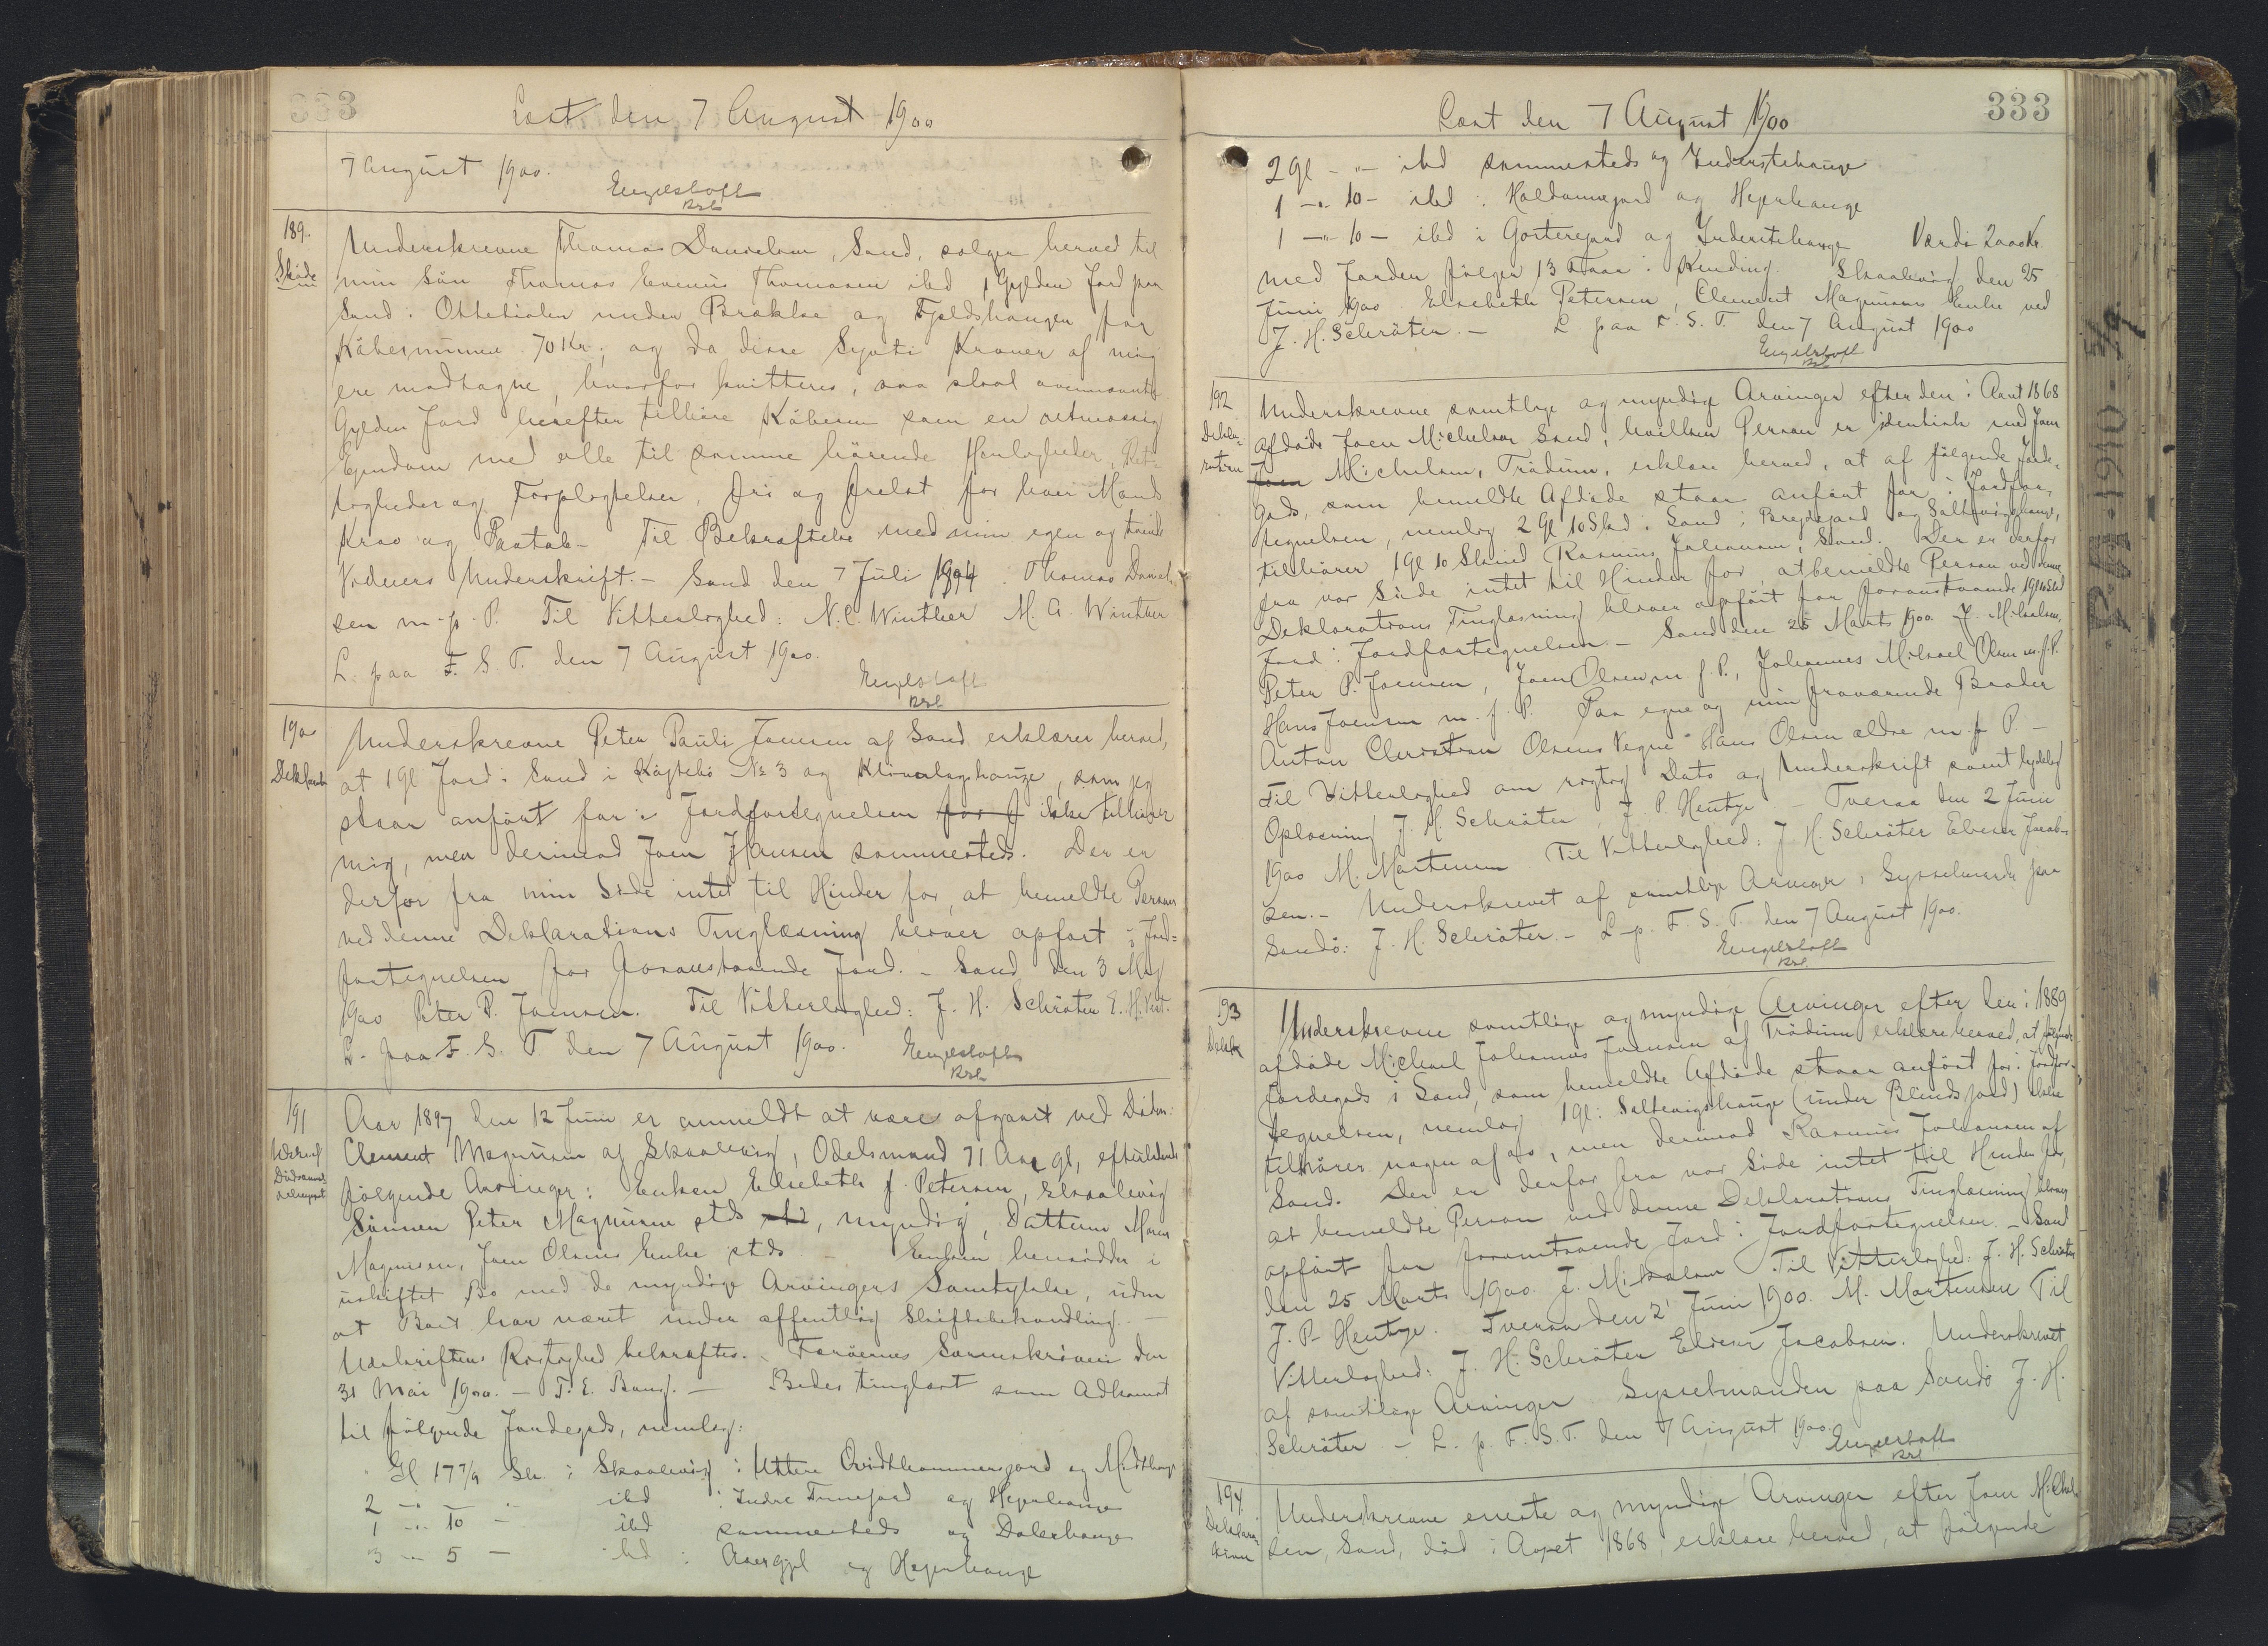 333
Læst den 7 August 1900
7 August 1900.
Engelstoft
189.
Skøde
Underskrevne Thomas Danielsen, Sand, sælger herved til
min Sön Thomas Thomasen ibd 1 Gylden Jord paa
Sand i under og for
Köbesummen 70 Kr; og da disse Sytti Kroner af mig
ere modtagne, hvorfor kvitteres, saa skal ovennævnte
Gylden Jord herefter tilhöre Köberen som en retmæssig
Ejendom med alle til samme hörende Herligheder, Ret-
tigheder og Forpligtelser, fri og frelst for hver Mands
Krav og Paatale. Til Bekræftelse med min egen og tvende
Vidners Underskrift. - Sand den 7 Juli 1894. Thomas Daniel-
sen m. f. P. Til Vitterlighed: N. C. Winther M. A. Winther
L. paa F. S. T. den 7 August 1900.
Engelstoft
190
Underskrevne Peter Pauli Joensen af Sand erklærer herved,
at 1 gl Jord i Sand i No 3 og, som jeg
staar anfört for i Jordfortegnelsen for J ikke tilhörer
mig, men derimod Joen Hansen sammesteds. Der er
derfor fra min Side intet til Hinder for, at bemeldte Person
ved denne Deklarations Tinglæsning bliver opfört i Jord-
fortegnelsen for foranstaaende Jord. - Sand den 3 Maj
1900 Peter P. Joensen. Til Vitterlighed: J. H. Schröter E. H.
L. paa F. S. T. den 7 August 1900.
Engelstoft
191
Aar 1897 den 12 Juni er anmeldt at være afgaaet ved Döden
Clement Magnusen af Skaalevig, Odelsmand 71 Aar gl, efterladende
fölgende Arvinger: Enken Elsebeth f. Petersen, Skaalevig
Sönnen Peter Magnusen stds, myndig, Datteren Maren
Magnusen, Joen Olsens Enke stds. - Enken hensidder i
uskiftet Bo med de myndige Arvingers Samtykke, uden
at Boet har været under offentlig Skiftebehandling. -
Udskriftens Rigtighed bekræftes. - Færöernes Sorenskriveri den
31 Mai 1900. - T. E. Bang. - Bedes tinglæst som Adkomst
til fölgende Jordegods, nemlig:
Gl 17 7/9 Sk. i Skaalevig i Uttere og
2 - " - " ibd i Indre og Heyehauge
1 - " 10 - ibd sammesteds og Dalehauge
3 - " 5 - ibd i og Heyehauge
Læst den 7 August 1900
333
2 gl - " - ibd sammesteds og Inderstehauge
1 - " 10 - ibd i og Heyehauge
1 - " 10 - ibd i og Inderstehauge Værdi 2000 Kr.
med Jorden fölger 13 Faar i Kending. Skaalevig den 25
Juni 1900 Elsebeth Petersen, Clement Magnusens Enke ved
J. H. Schröter. - L. paa F. S. T. den 7 August 1900
Engelstoft
192
Dekla-
ration
Underskrevne samtlige og myndige Arvinger efter den i Aaret 1868
afdöde Joen Michelsen Sand, hvilken Person er identisk med Joen
Joen Michelsen, Trödum, erklære herved, at af fölgende Jorde-
gods, som bemeldte Afdöde staar anfört for i Jordfor-
tegnelsen, nemlig 2 gl 10 Skind i Sand i og Saltevigshauge,
tilhörer 1 gl 10 Skind Rasmus Johansen, Sand. Der er derfor
fra vor Side intet til Hinder for, at bemeldte Person ved denne
Deklarations Tinglæsning bliver opfört for foranstaaende 1 gl 10 Skd
Jord i Jordfortegnelsen. - Sand den 25 Marts 1900. J. Mikkelsen,
Peter P. Joensen, Joen Olsen m. f. P., Johannes Mikael Olsen m. f. P.
Hans Joensen m. f. P. Paa egne og min fraværende Broder
Anton Christian Olsens Vegne Hans Olsen ældre m. f. P. -
Til Vitterlighed om rigtig Dato og Underskrift samt tydelig
Oplæsning J. H. Schröter, J. P. Hentze - Tveraa den 2 Juni
1900 M. Mortensen Til Vitterlighed: J. H. Schröter Jacob-
sen. - Underskrevet af samtlige Arvinger, Sysselmanden paa
Sandö: J. H. Schröter. - L. p. F. S. T. den 7 August 1900.
Engelstoft
193
Dekl
Underskrevne samtlige og myndige Arvinger efter den i 1889
afdöde Michael Johannes Joensen af Trödum erklære herved, at fölgende
Jordegods i Sand, som bemeldte Afdöde staar anfört for i Jordfor-
tegnelsen, nemlig 1 gl i Saltevigshauge (under) ikke
tilhörer nogen af os, men derimod Rasmus Johansen af
Sand. Der er derfor fra vor Side intet til Hinder for,
at bemeldte Person ved denne Deklarations Tinglæsning bliver
opfört for foranstaaende Jord i Jordfortegnelsen. - Sand
den 25 Marts 1900. J. Mikkelsen Til Vitterlighed: J. H. Schröter
J. P. Hentze. Tveraa den 2 Juni 1900. M. Mortensen Til
Vitterlighed: J. H. Schröter Jacobsen. Underskrevet
af samtlige Arvinger Sysselmanden paa Sandö J. H.
Schröter - L. p. F. S. T. den 7 August 1900
Engelstoft
194.
Deklara-
tion
Underskrevne eneste og myndige Arvinger efter Joen Michel-
sen, Sand, död i Aaret 1868, erklære herved, at fölgende